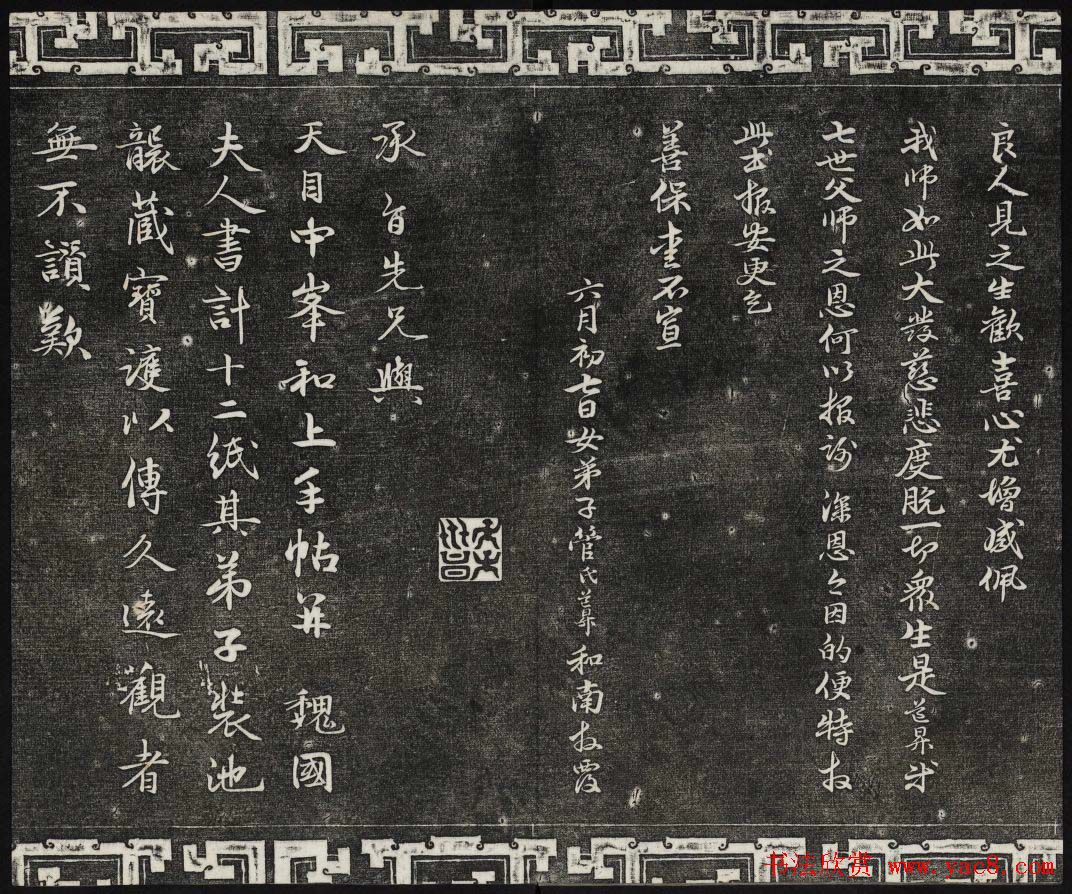 良人見之生歡喜心尤增感佩
我師如此大發慈悲度脫一切衆生是道昇
七世父師之恩何以報謝 深恩今因的便特
此上報安更乞
善保重不宣
六月初七日女弟子管氏 和南 覆
承旨先兄與
天目中峯和上手帖并 魏國
夫人書計十二紙其弟子裝池
襲藏寶護以傳久遠觀者
無不讚歎
书法欣赏 www.yac8.com